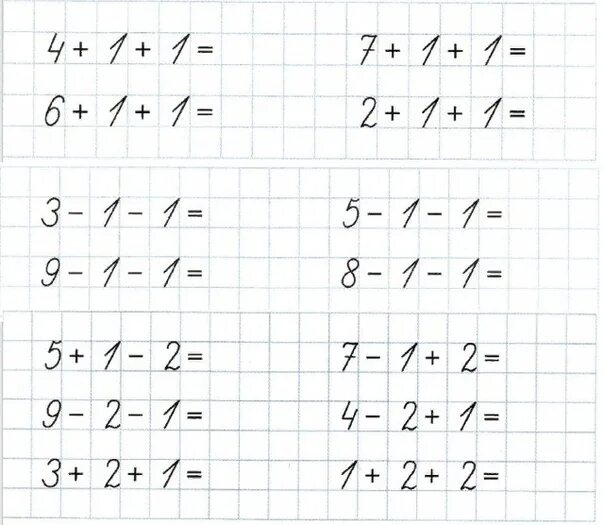 4 + 1 + 1 = 7 + 1 + 1 =
6 + 1 + 1 = 2 + 1 + 1 =
3 - 1 - 1 = 5 - 1 - 1 =
9 - 1 - 1 = 8 - 1 - 1 =
5 + 1 - 2 = 7 - 1 + 2 =
9 - 2 - 1 = 4 - 2 + 1 =
3 + 2 + 1 = 1 + 2 + 2 =